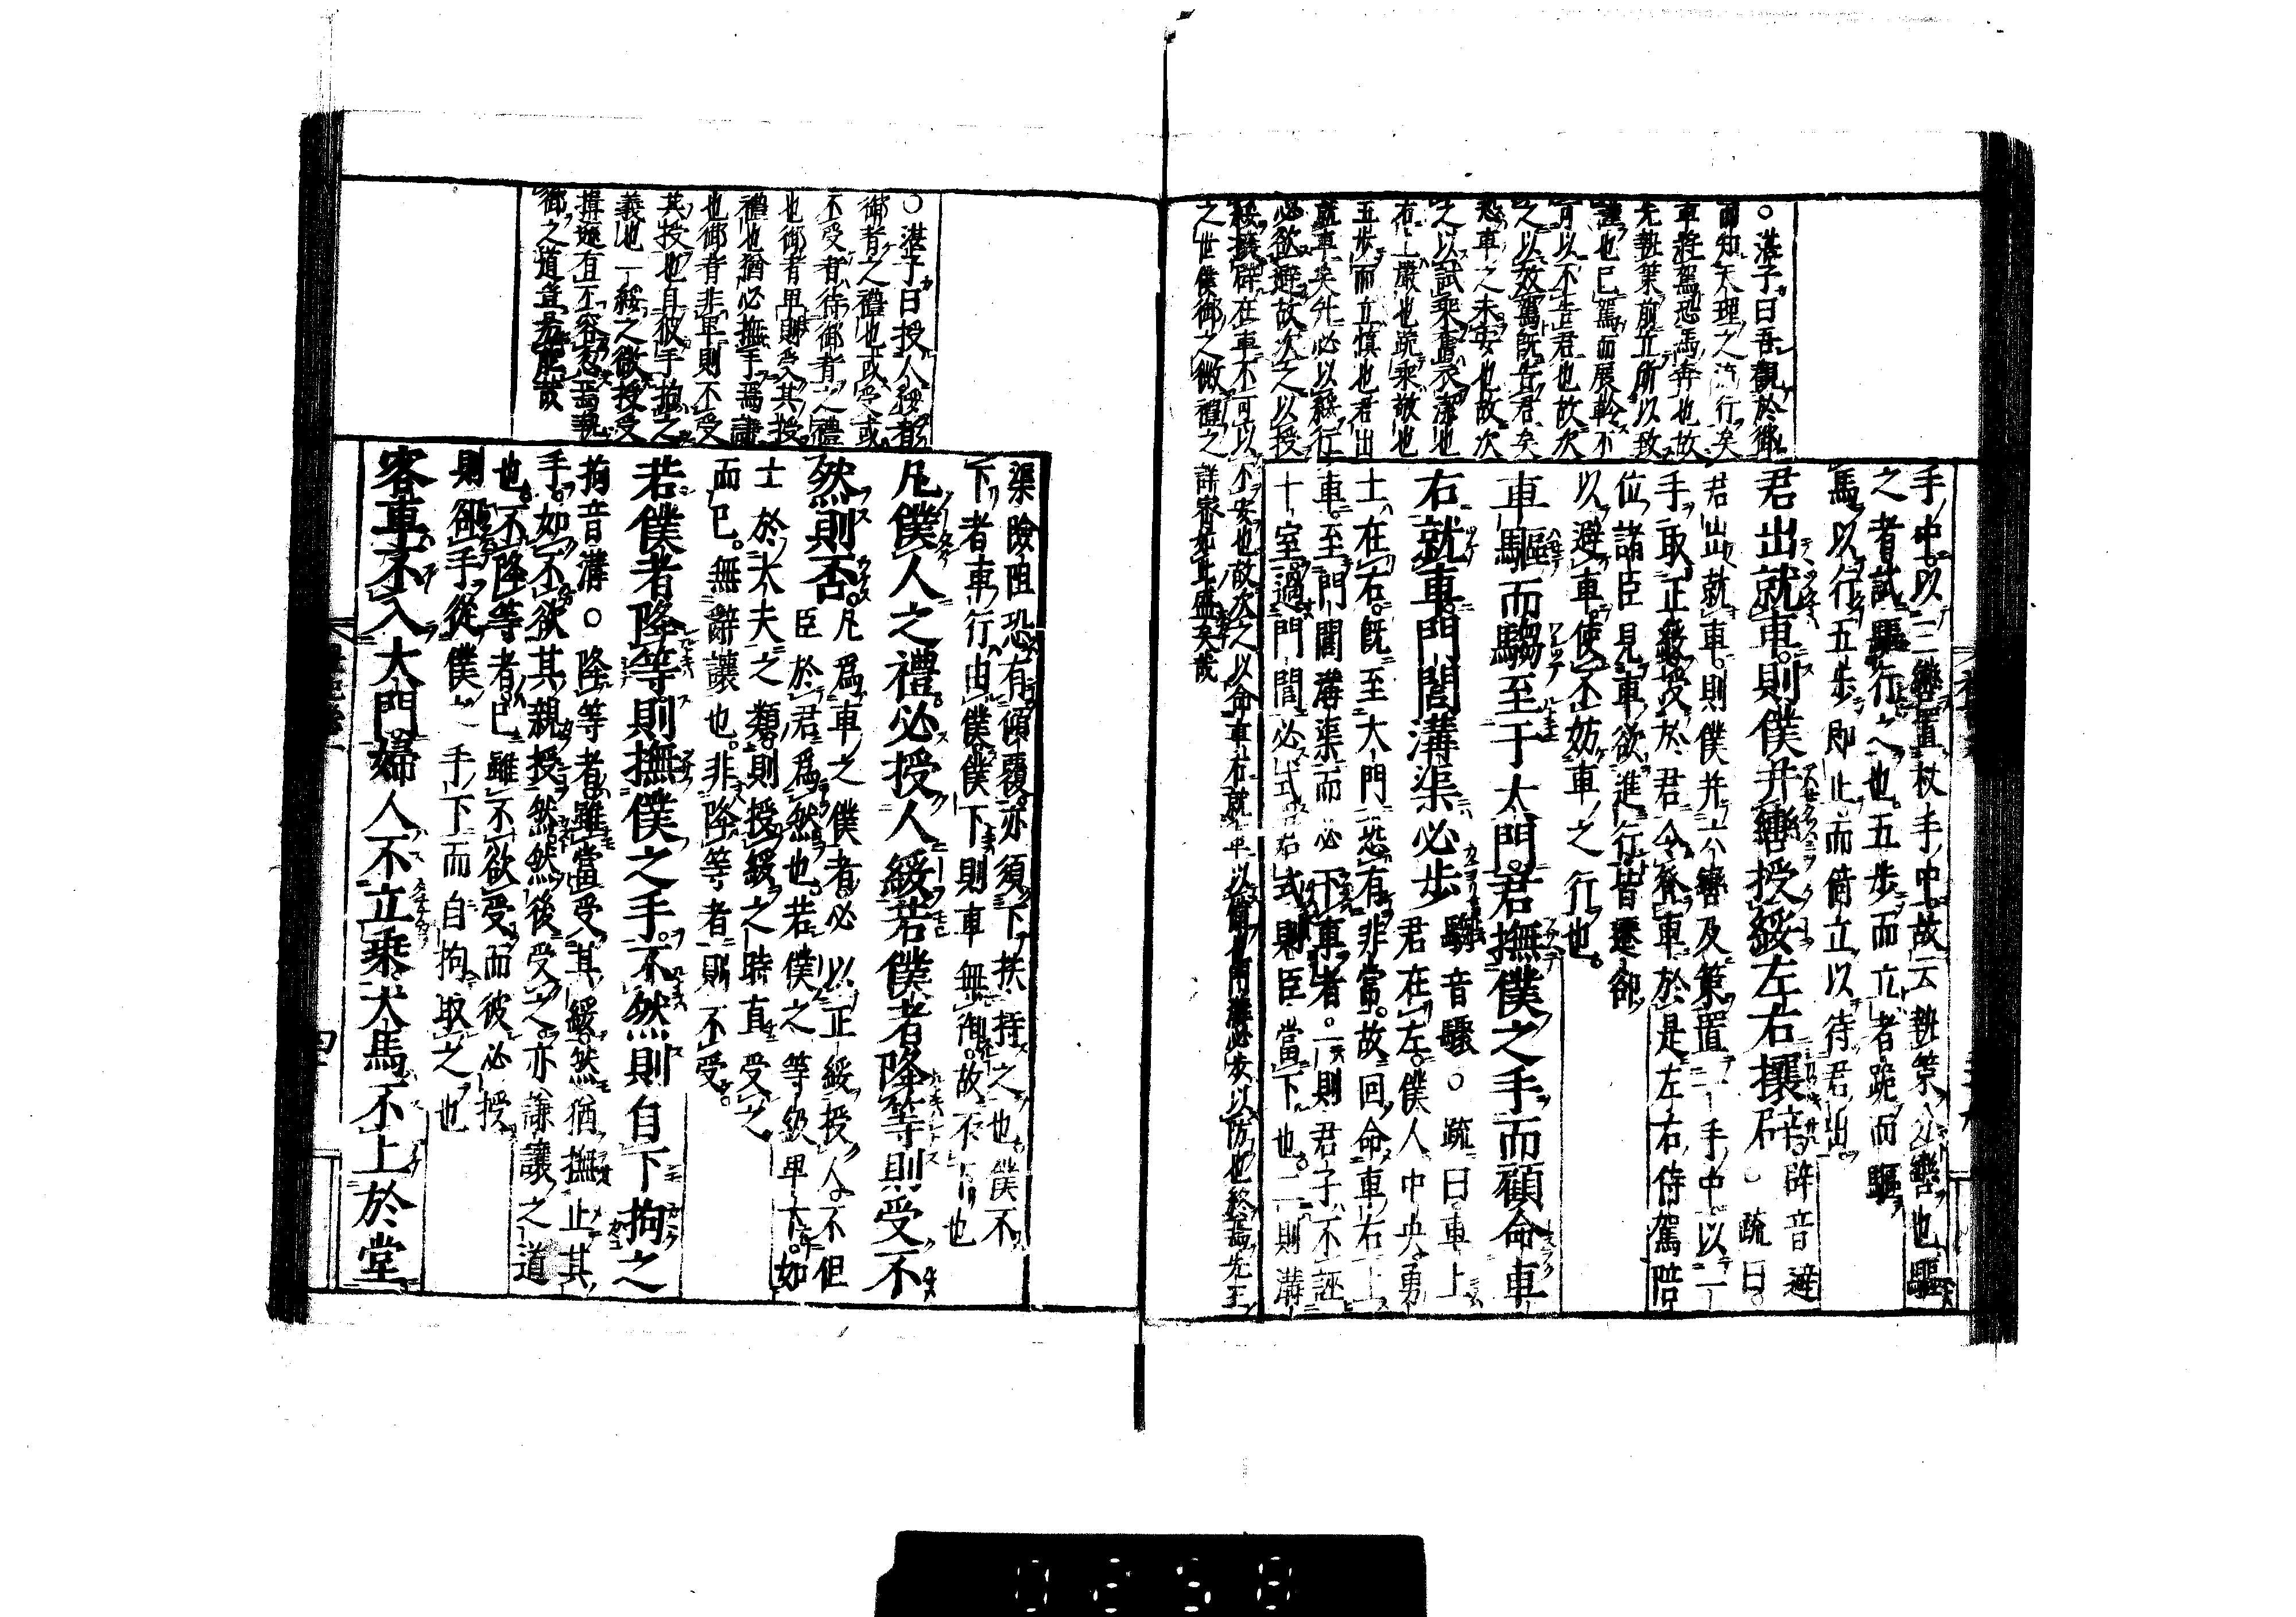 手中以三轡置杖手中故云執策分轡也驅
之者試驅行之也五步而立者跪而驅
馬以行五步即止而倚立以待君出
君出就車則僕并轡授綏左右攘辟 辟音避
○疏曰
君出就車則僕并六轡及策置一手中以一
手取正綏授於君令登車於是左右侍駕陪
位諸臣見車欲進行皆遷卻
以避車使不妨車之行也
車驅而騶至于大門君撫僕之手而顧命車
右就車門閭溝渠必步 騶音驟○疏曰車上
君在左僕人中央勇
士在右既至大門恐有非常故回命車右上
車至門閭溝渠而必下車者一則君子不誣
十室過門閭必式君式則臣當下也二則溝
渠險阻恐有傾覆亦須下扶持之也僕不
下者車行由僕僕下則車無御故不下也
凡僕人之禮必授人綏若僕者降等則受不
然則否 凡為車之僕者必以正綏授人不但
臣於君為然也若僕之等級卑下如
士於大夫之類則授綏之時直受之
而已無辭讓也非降等者則不受
若僕者降等則撫僕之手不然則自下拘之
拘音溝○降等者雖當受其綏然猶撫止其
手如不欲其親授然然後受之亦謙讓之道
也不降等者己雖不欲受而彼必授
則卻手從僕手下而自拘取之也
客車不入大門婦人不立乘犬馬不上於堂
○湛子曰吾觀於御
而知天理之流行矣
車將駕恐馬奔也故
先執策前立所以致
謹也已駕而展軨不
可以不告君也故次
之以效駕既告君矣
恐車之未安也故次
之以試乘奮衣潔也
右上嚴也跪乘敬也
五步而立慎也君出
就車矣升必以綏行
必欲避故次之以授
綏攘辟在車不可以
不安也故次之以命車右就車以備門溝必步以防也終焉先王
之世僕御之微禮之
詳密如此盛矣哉
○湛子曰授人綏者
御者之禮也或受或
不受者待御者之禮
也御者卑則受其授
禮也猶必撫手焉謙
也御者非卑則不受
其授也自彼手拘之
義也一綏之微授受
揖遜有不容忽焉執
御之道豈易能哉